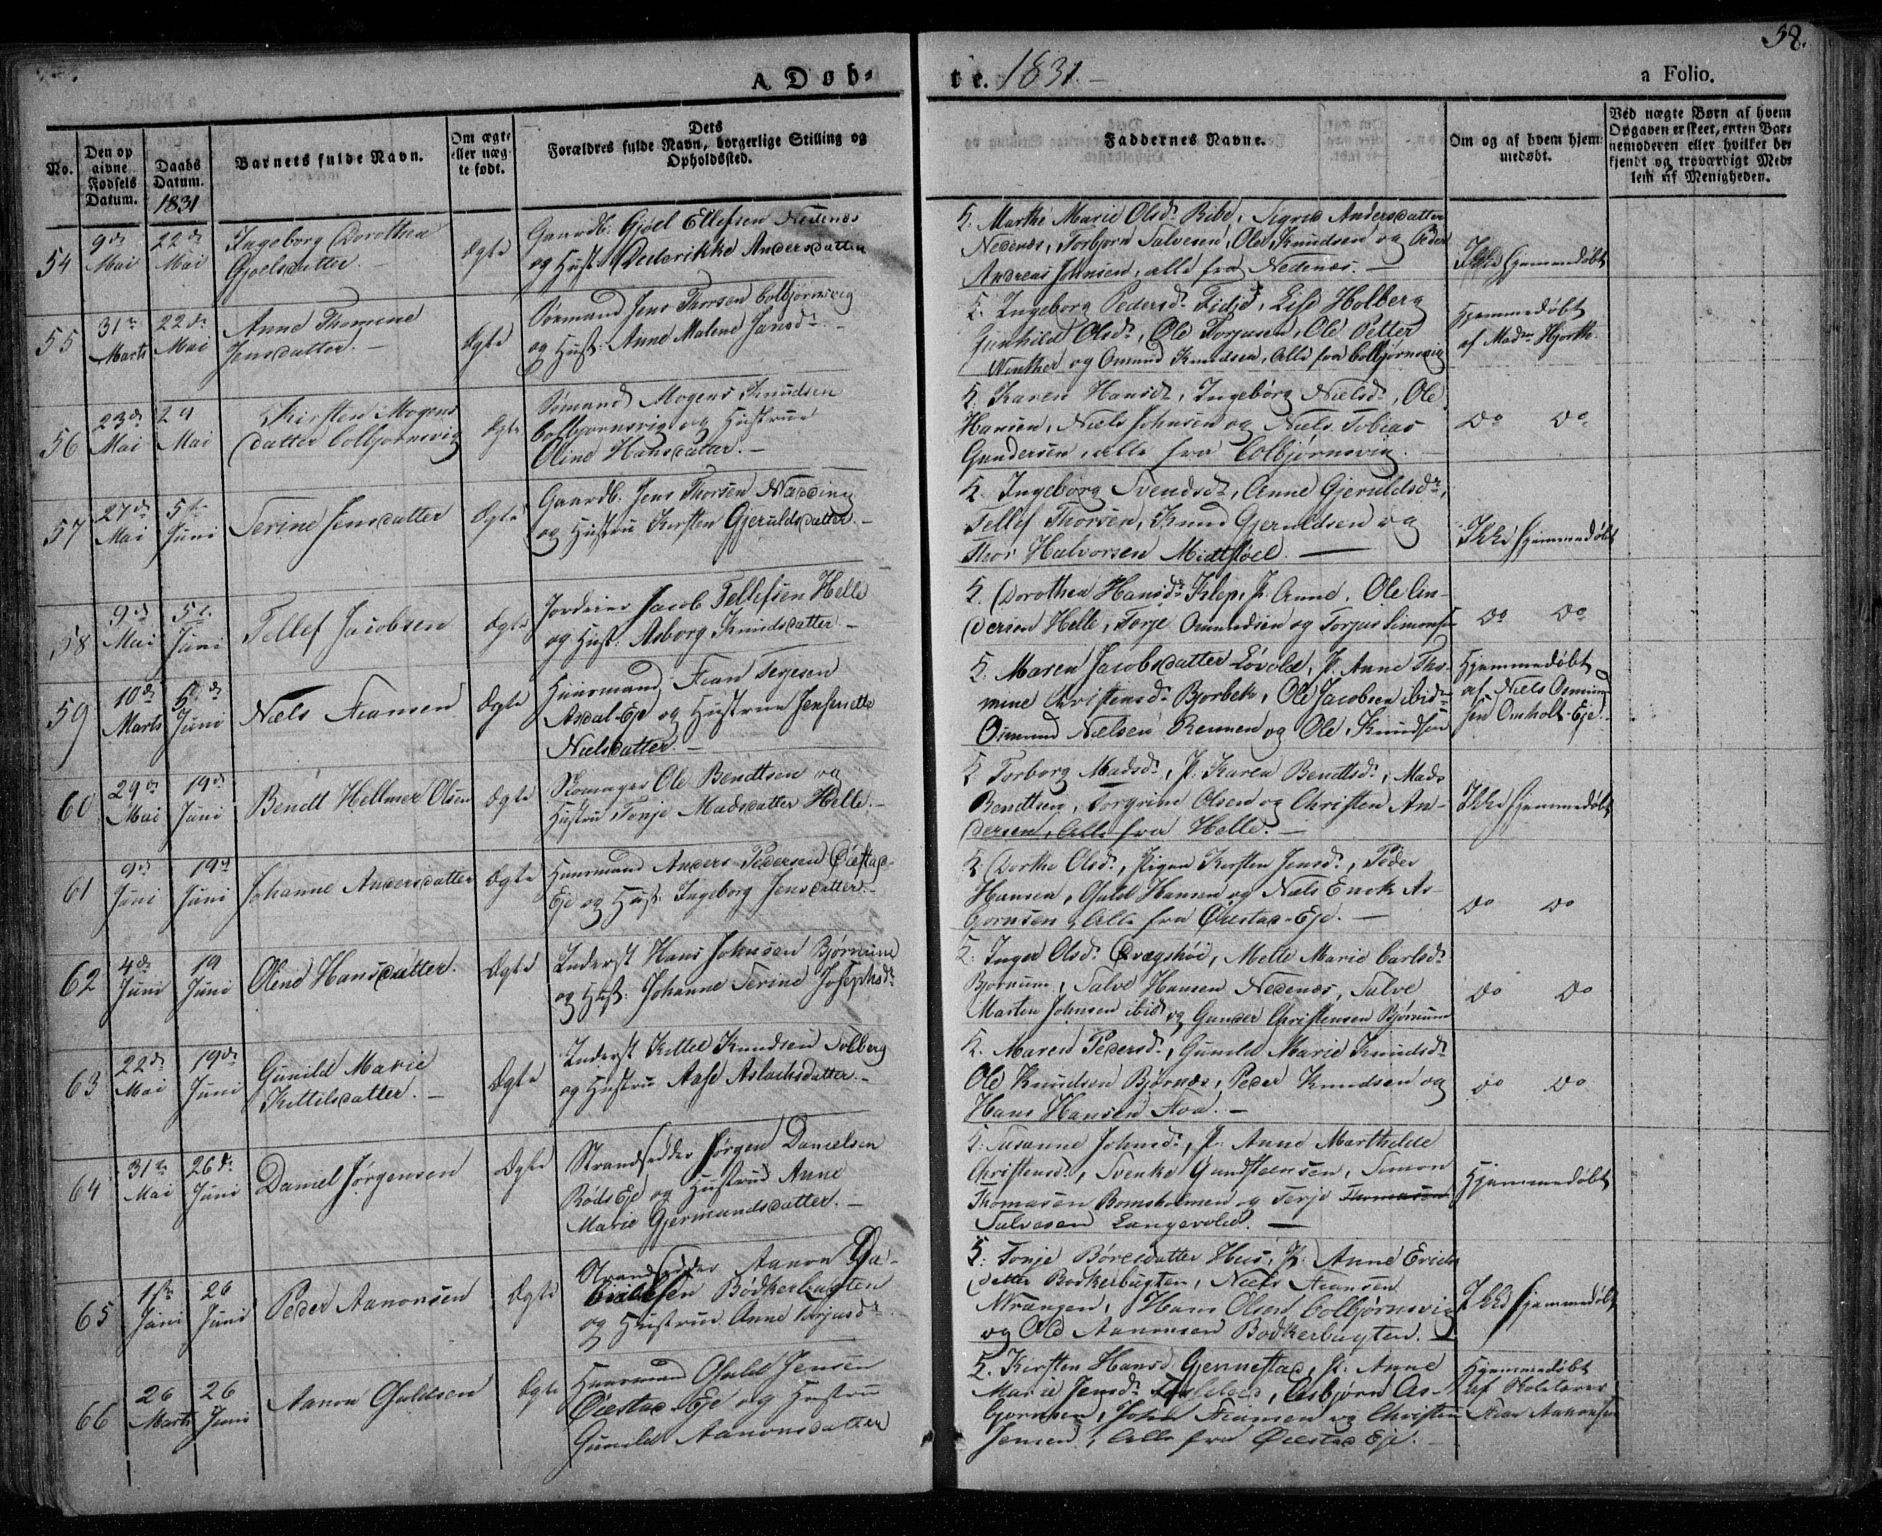 A Døb-
te. 1831.-
58.
a Folio.
No.
Den op
givne
Fødsels
Datum.
Daabs
Datum.
1831
Barnets fulde Navn.
Om ægte
eller næg-
te født.
Dets
Forældres fulde Navn, borgerlige Stilling og
Opholdssted.
Faddernes Navne.
Om og af hvem hjem-
medøbt.
Ved uægte Børn af hvem
Opgaven er skeet, enten Bar-
nemoderen eller hvilket be-
kjendt og troværdigt Med-
lem af Menigheden.
54
9de
Mai
22de
Mai
Ingeborg Dorothea
Gjoelsdatter.-
Ægte
Gaardb. Gjøel Ellefsen Nedenes
og Hust. Diderikke Andersdatter
K. Marthe Marie Olsdr. Bibe, Sigrid Andersdatter
Nedenes, Torbjørn Salvesen, Ole Knudsen og Peder
Andreas Johnsen, alle fra Nedenes.-
Ikke hjemmedøbt
55
31te
Marts
22de
Mai
Anne Thomine
Jensdatter.-
Ægte
Sømand Jens Thorsen Colbjørnsvig
og Hust. Anne Malene Jansdr.-
K. Ingeborg Pedersdr. Fidje, Lise Holberg
Gunhild Olsdr., Ole Torjusen, Ole Petter
Winther og Omund Knudsen, alle fra Colbjørnsvig
Hjemmedøbt
af Madm. Hjorth.
56
23de
Mai
29
Mai
Kirsten Mogens
datter Colbjørnsvig
Ægte
Sømand Mogens Knudsen
Colbjørnsvig og Hustrue
Oline Hansdatter.-
K. Karen Hansdr., Ingeborg Nielsdr., Ole
Hansen, Niels Johnsen og Niels Tobias
Gundersen, alle fra Colbjørnsvig.
Do Do
57
27de
Mai
5te
Juni
Terine Jensdatter
Ægte
Gaardb. Jens Thorsen Nædding
og Hustru Kirsten Gjeruldsdatter.-
K. Ingeborg Svendsdr., Anne Gjeruldsdr.,
Tellef Thorsen, Knud Gjeruldsen og
Thor Halvorsen Midtstøel.-
Ikke hjemmedøbt
58
9de
Mai
5te
Juni
Tellef Jacobsen
Ægte
Jordeier Jacob Tellefsen Helle
og Hust. Asborg Knudsdatter.-
K. Dorothea Hansdr. Klep, P. Anne. Ole An-
dersen Helle, Terje Omundsen og Torjus Simonsen
Do Do
59
10de
Marts
5de
Juni
Niels Fransen
Ægte
Huusmand Fran Terjesen
Asdal-Eje og Hustrue Jensine
Nielsdatter.-
K. Maren Jacobsdatter Løvold, P. Anne Tho-
mine Christensdr. Bjorbek, Ole Jacobsen ibid.
Osmund Nielsen Rennen og Ole Knudsen
Hjemmedøbt
af Niels Osmun-
sen Omholt-Eje.-
60
29de
Mai
19de
Juni
Bendt Hellmer Olsen
Ægte
Skomager Ole Bendtsen og
Hustru Tonje Madsdatter Helle.-
K. Torborg Madsdr., P. Karen Bendtsdr., Mads
Bendtsen, Torgrim Olsen og Christen An-
dersen, alle fra Helle.-
Ikke hjemmedøbt
61
9de
Juni
19de
Juni
Johanne Andersdatter
Ægte
Huusmand Anders Pedersen Øiestad-
Eje og Hust. Ingeborg Jensdatter.-
K. Dorthe Olsdr., Pigen Kirsten Jensdr., Peder
Hansen, Ofald Hansen og Niels Enok As-
bjornsen, alle fra Øiestad-Eje.-
Do Do
62
4de
Juni
19
Juni
Olene Hansdatter.
Ægte
Inderst Hans Johnsen Bjørnum
og Hust. Johanne Serine Josephsdr.
K. Inger Olsdr. Dragehøi, Melle Marie Carlsdr.
Bjornum, Salve Hansen Nedenes, Salve
Morten Johnsen ibid og Gunder Christensen Bjørnum
Do Do
63
22de
Mai
19de
Juni
Gunild Marie
Kittilsdatter.-
Ægte
Inderst Kittel Knudsen Solberg
og Hustrue Aase Aslachsdatter.-
K. Maren Pedersdr., Gunild Marie Knudsdr.
Ole Knudsen Bjørnæs, Peder Knudsen og
Hans Hansen Floa.-
Do Do
64
31te
Mai
26de
Juni
Daniel Jørgensen
Ægte
Strandsedder Jørgen Danielsen
Røds Eje og Hustrue Anne
Marie Gjermundsdatter.-
K. Susanne Johnsdr., P. Anne Marthilde
Christensdr., Svenke Gundstensen, Simon
Thomasen Bomsholmen og Terje Thomasen
Salvesen Langevold.-
Hjemmedøbt
65
1ste
Juni
26
Juni
Peder Aanonsen
Ægte
Strandsedder Aanon Da-
nielsen Bødkerbugten
og Hustrue Anne Torjusdr.
K. Tonje Børesdatter Huus, P. Anne Erics
datter Bodkerbugten, Niels Fransen
Wrangen, Hans Olsen Colbjørnsvig
og Ole Aanonsen Bodkerbugten.-
Ikke hjemmedøbt
66
26
Marts
26
Juni
Aanon Ofuldsen
Ægte
Huusmand Ofuld Jensen
Øiestad-Eje og Hustrue
Gunild Aanonsdatter
K. Kirsten Hansd. Gjennestad, P. Anne
Marie Jensdr., Asbjørn As-
bjornsen, John Fransen og Christen
Jensen, alle fra Øiestad Eje.-
Hjemmedøbt
af Skolelærer
Fran Aanonsen